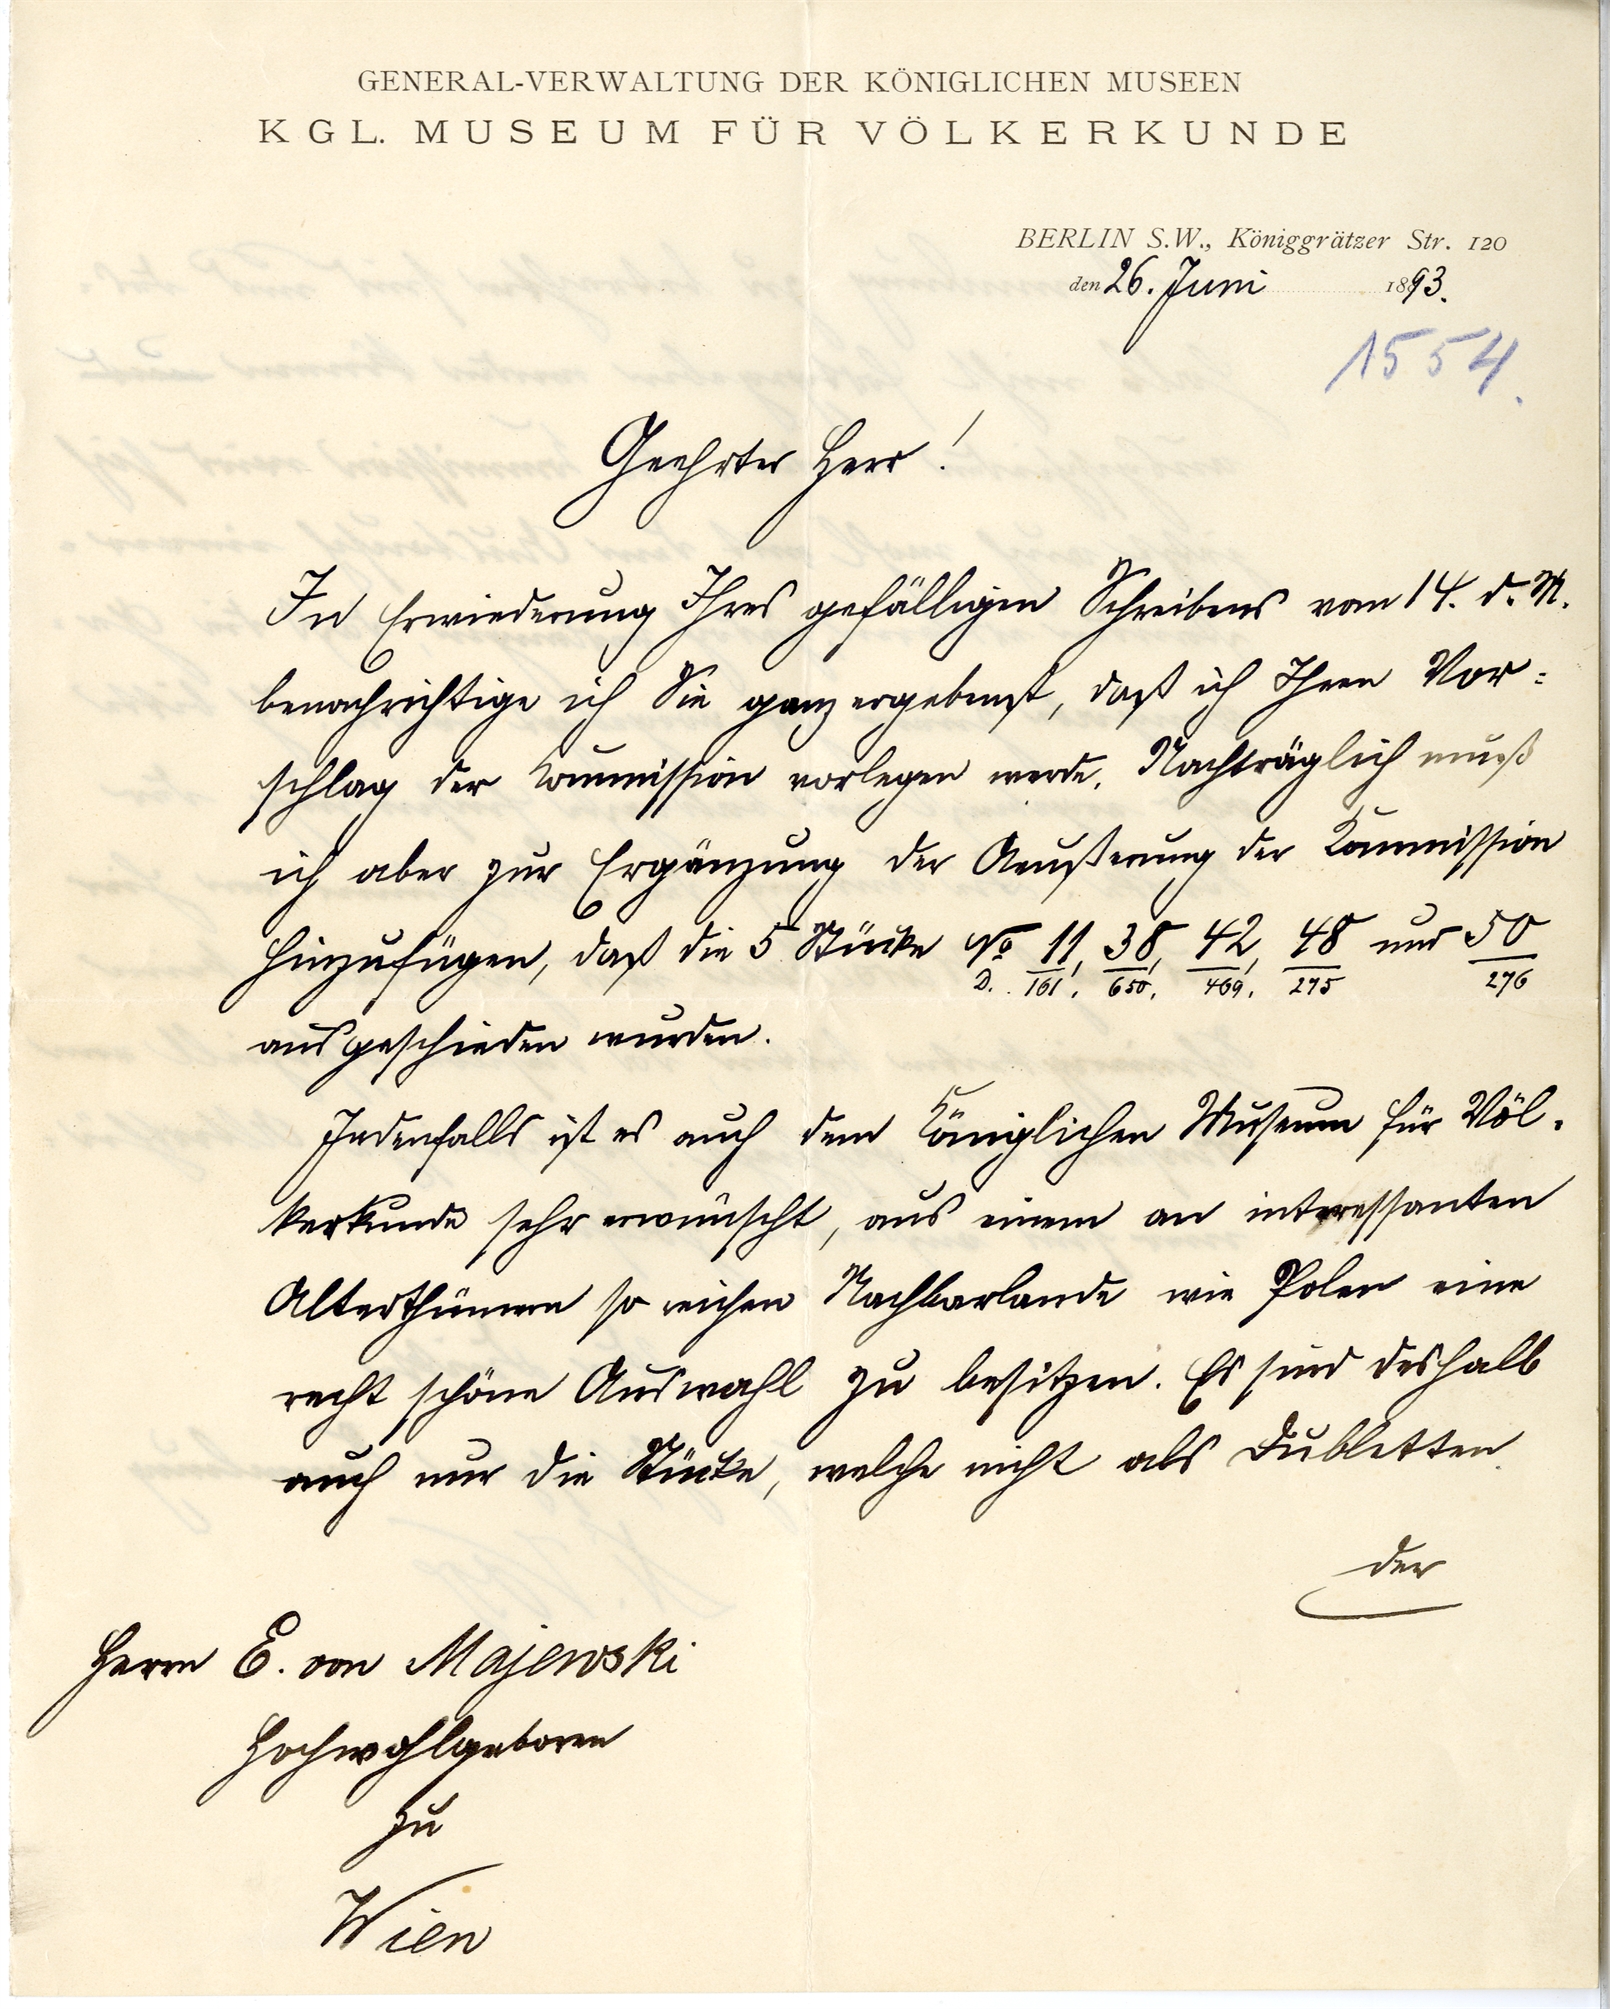 GENERAL-VERWALTUNG DER KÖNIGLICHEN MUSEEN
KGL. MUSEUM FÜR VÖLKERKUNDE
BERLIN S.W., Königgrätzer Str. 120
den 26. Juni 1893.
1554.
Geehrter Herr!
In Erwiederung Ihres gefälligen Schreibens vom 14. d. M.
benachrichtige ich Sie ganz ergebenst, daß ich Ihren Vor=
schlag der Commission vorlegen werde. Nachträglich muß
ich aber zur Ergänzung der Aeußerung der Commission
hinzufügen, daß die 5 Stücke No 11, 38, 42, 48 und 50
D. 161, 650, 469, 275 276
ausgeschieden wurden.
Jedenfalls ist es auch dem Königlichen Museum für Völ-
kerkunde sehr erwünscht, aus einem an interessanten
Alterthümern so reichen Nachbarlande wie Polen eine
recht schöne Auswahl zu besitzen. Es sind deshalb
auch nur die Stücke, welche nicht als Dubletten
der
Herrn E. von Majewski
Hochwohlgeboren
zu
Wien